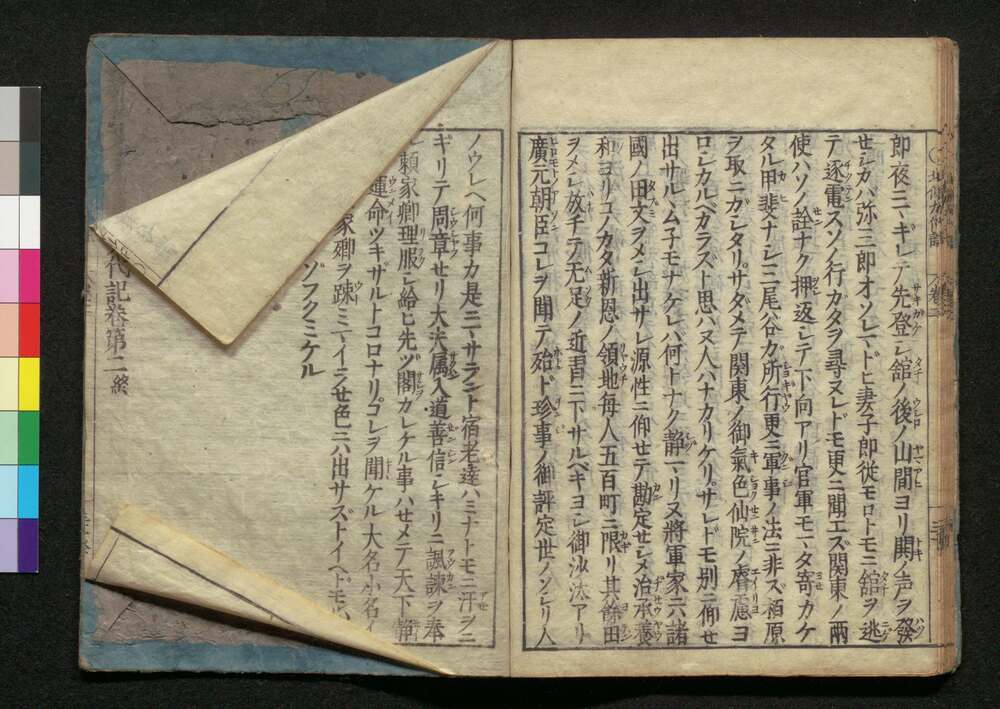 即夜ニマギレテ先登シ館ノ後ノ山間ヨリ鬨ノ声ヲ發
セシカバ弥三郎オソレマドヒ妻子郎従モロトモニ舘ヲ逃
テ逐電スソノ行ガタヲ尋ヌレドモ更ニ聞エズ関東ノ兩
使ハソノ詮ナク押返シテ下向アリ官軍モマタ寄カケ
タル甲斐ナシ三尾谷ガ所行更ニ軍事ノ法ニ非ズ栢原
ヲ取ニガシタリサダメテ関東ノ御氣色仙院ノ睿慮ヨ
ロシカルベカラズト思ハヌ人ハナカリケリサレドモ別ニ仰セ
出サルヽムネモナケレバ何トナク静マリヌ将軍家六諸
國ノ田文ヲメシ出サレ源性ニ仰セテ勘定セシメ治承養
和ヨリコノカタ新恩ノ領地毎人五百町ニ限リ其餘田
ヲメシ放チテ无足ノ近習ニ下サルベキヨシ御沙汰アリ
廣元朝臣コレヲ聞テ殆ド珍事ノ御評定世ノソシリ人
ノウレヘ何事カ是ニマサラント宿老達ハミナトモニ汗ヲニ
ギリテ周章セリ大夫属入道善信シキリニ諷諫ヲ奉
頼家卿理服シ給ヒ先ヅ閣カレケル事ハセメテ天下静
運命ツキザルトコロナリコレヲ聞ケル大名小名
家卿ヲ踈ミマイラセ色ニハ出サズトイヘドモ
ゾフクミケル
代記巻第二終